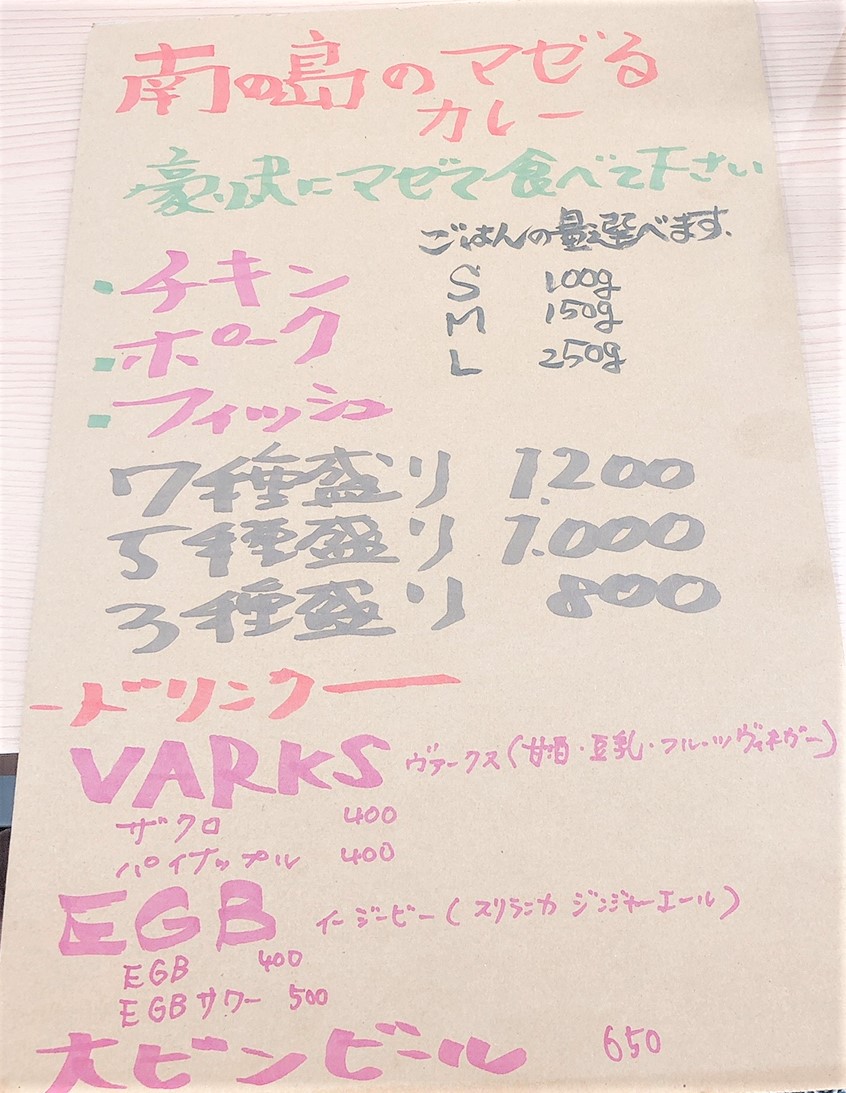 南の島のマゼる
カレー
豪快にマゼて食べて下さい
ごはんの量選べます.
S 100g
M 150g
L 250g
・チキン
・ポーク
・フィッシュ
7種盛り 1.200
5種盛り 1.000
3種盛り 800
-ドリンク-
VARKS ヴァークス(甘酒・豆乳・フルーツヴィネガー)
ザクロ 400
パイナップル 400
EGB イージービー(スリランカ ジンジャーエール)
EGB 400
EGBサワー 500
大ビンビール 650